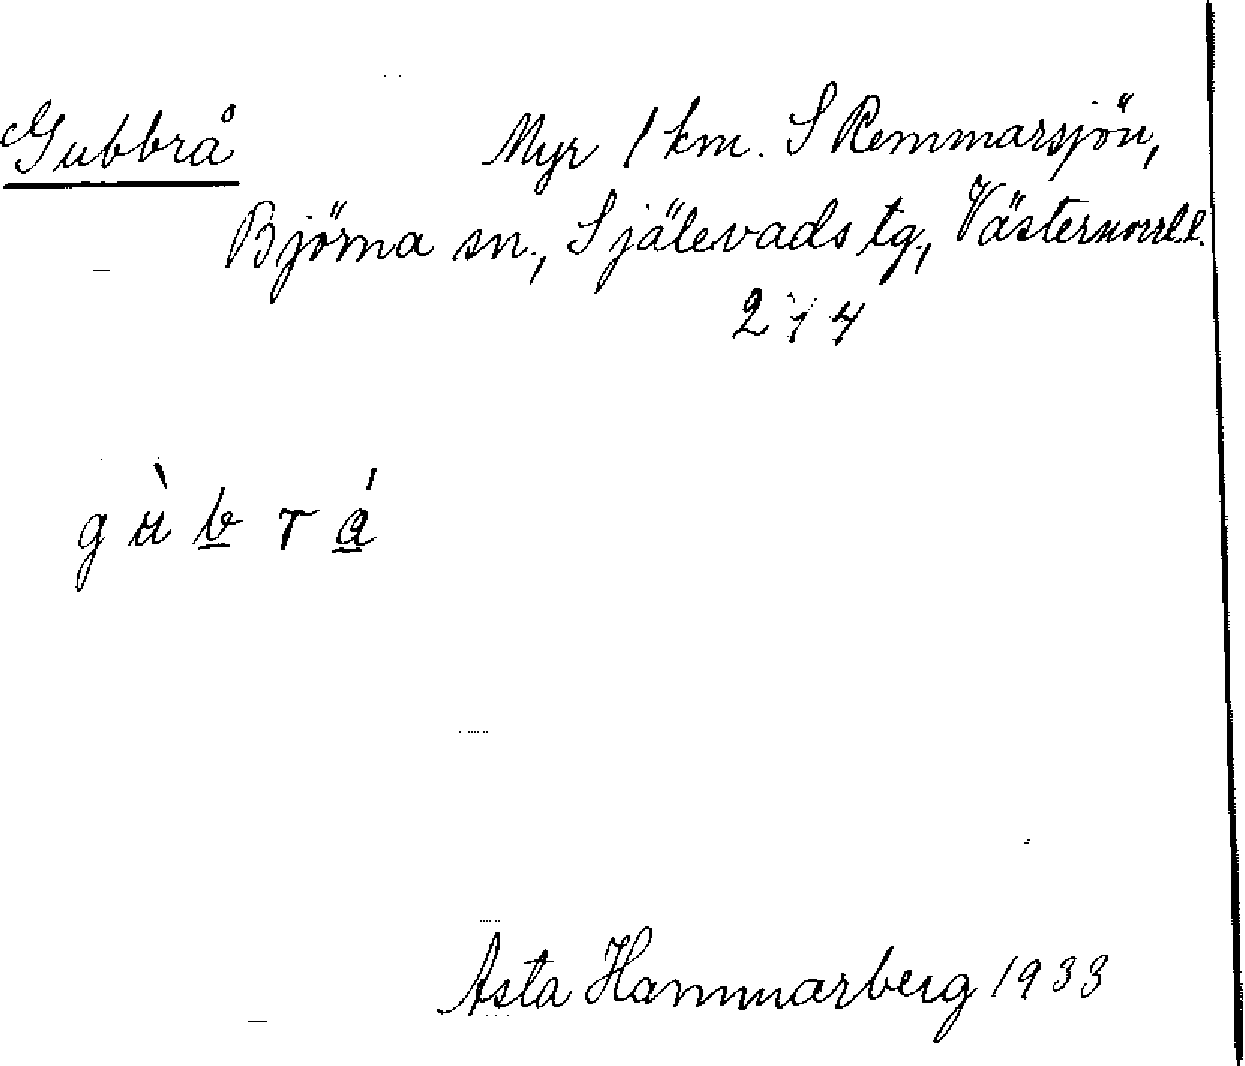 Gubbrå Myr 1 km. S Remmarsjön,
Björna sn., Själevads tg., Västernorrl.l.
274
g ù b r á
Asta Hammarberg 1933